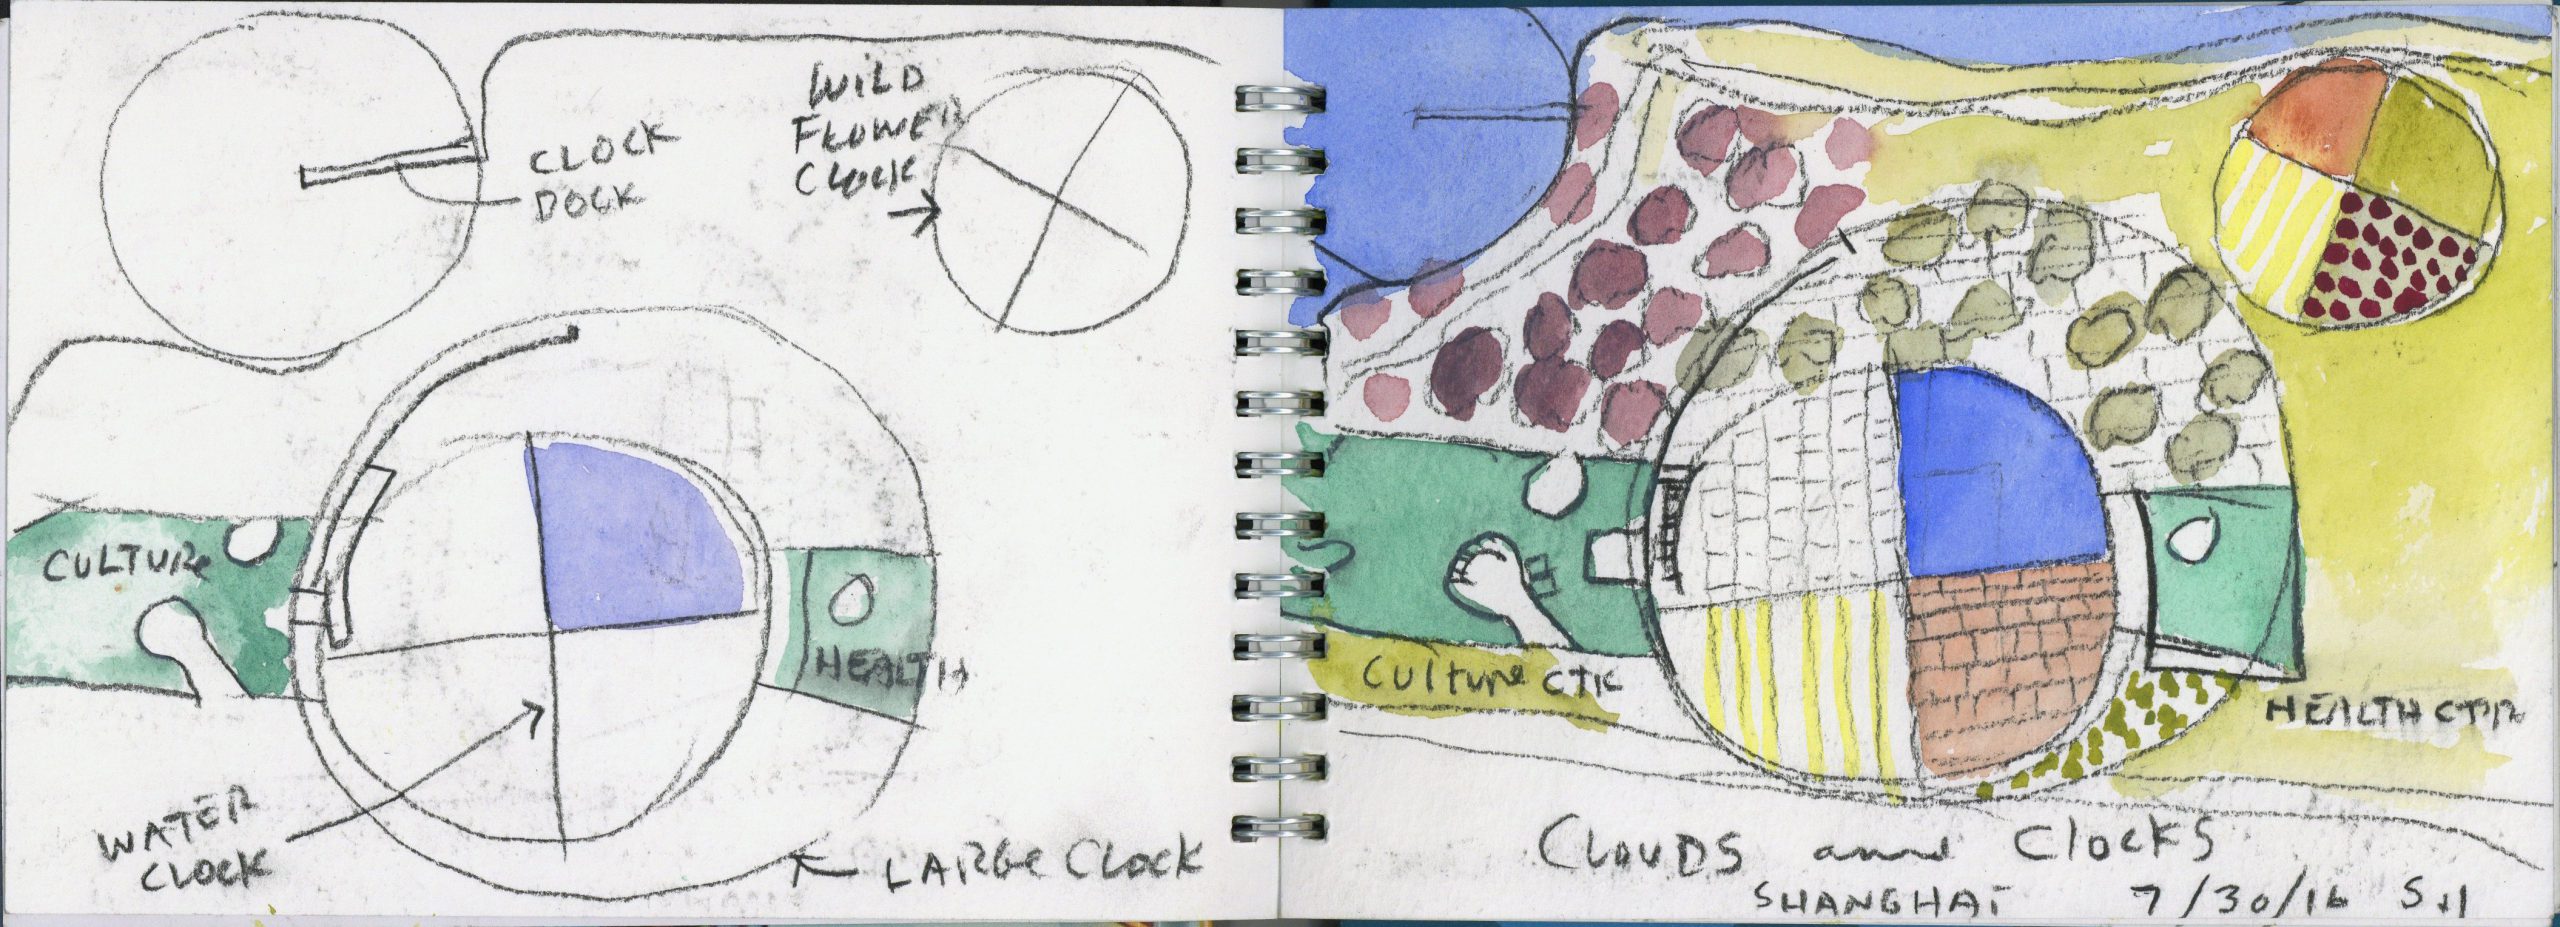 CLOCK
DOCK
WILD
FLOWER
CLOCK
CULTURE
HEALTH
WATER
CLOCK
LARGE CLOCK
Culture CTR
HEALTH CTR
CLOUDS and Clocks
SHANGHAI 7/30/16